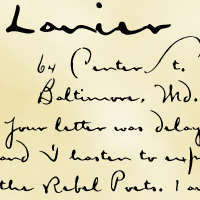 Lanier
64 Center St.
Baltimore, Md.
Your letter was delay
and I hasten to exp
the Rebel Poets. I a